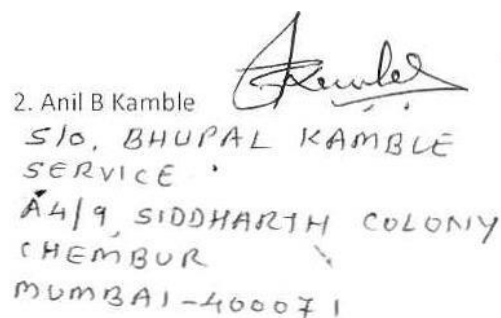 2. Anil B Kamble
S/O, BHUPAL KAMBLE
SERVICE
A4/9, SIDDHARTH COLONY
CHEMBUR
MUMBAI-400071